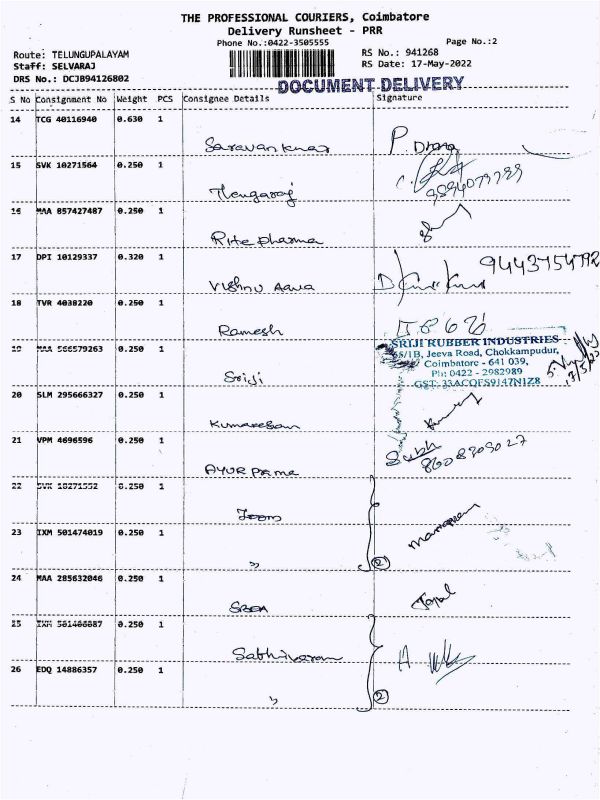 THE PROFESSIONAL COURIERS, Coimbatore
Delivery Runsheet - PRR
Phone No.:0422-3505555
Page No.:2
Route: TELUNGUPALAYAM
RS No.: 941268
Staff: SELVARAJ
RS Date: 17-May-2022
DRS No.: DCJB94126802
DOCUMENT DELIVERY
S No Consignment No Weight PCS Consignee Details Signature
14 TCG 40116940 0.630 1
Saravankumar P
15 SVK 10271564 0.250 1
Thengaraj
16 MAA 857427487 0.250 1
Rite Dharma
17 DPI 10129337 0.320 1
Vishnu 9443754792
18 TVR 4038220 0.250 1
Ramesh
SRIJI RUBBER INDUSTRIES
19 MAA 566579263 0.250 1
65/1B, Jeeva Road, Chokkampudur,
Coimbatore - 641 039,
Ph: 0422 - 2982989
GST: 33ACQFS9147N1Z8
Sriji
20 SLM 295666327 0.250 1
Kumaresan
21 VPM 4696596 0.250 1
AYUR 8608309027
22 SVK 10271552 0.250 1
Zoom
23 IXM 501474019 0.250 1
" 2
24 MAA 285632046 0.250 1
25 IXM 501406087 0.250 1
26 EDQ 14886357 0.250 1
" 2